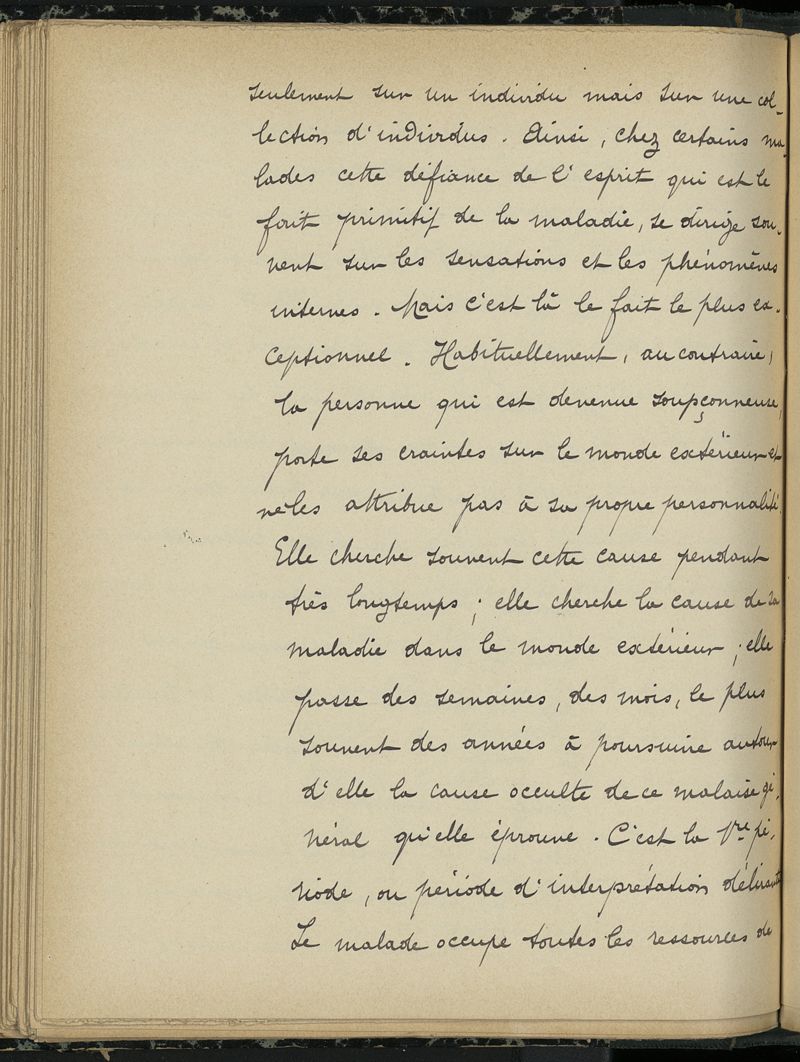 seulement sur un individu mais sur une col-
lection d'individus. Ainsi, chez certains ma-
lades cette défiance de l'esprit qui est le
fait primitif de la maladie, se dirige sou-
vent sur les sensations et les phénomènes
internes. Mais c'est là le fait le plus ex-
ceptionnel. Habituellement, au contraire,
la personne qui est devenue soupçonneuse,
porte ses craintes sur le monde extérieur et
ne les attribue pas à sa propre personnalité.
Elle cherche souvent cette cause pendant
très longtemps; elle cherche la cause de sa
maladie dans le monde extérieur; elle
passe des semaines, des mois, le plus
souvent des années à poursuivre autour
d'elle la cause occulte de ce malaise gé-
néral qu'elle éprouve. C'est la 1re pé-
riode, ou période d'interprétation délirante
Le malade occupe toutes les ressources de